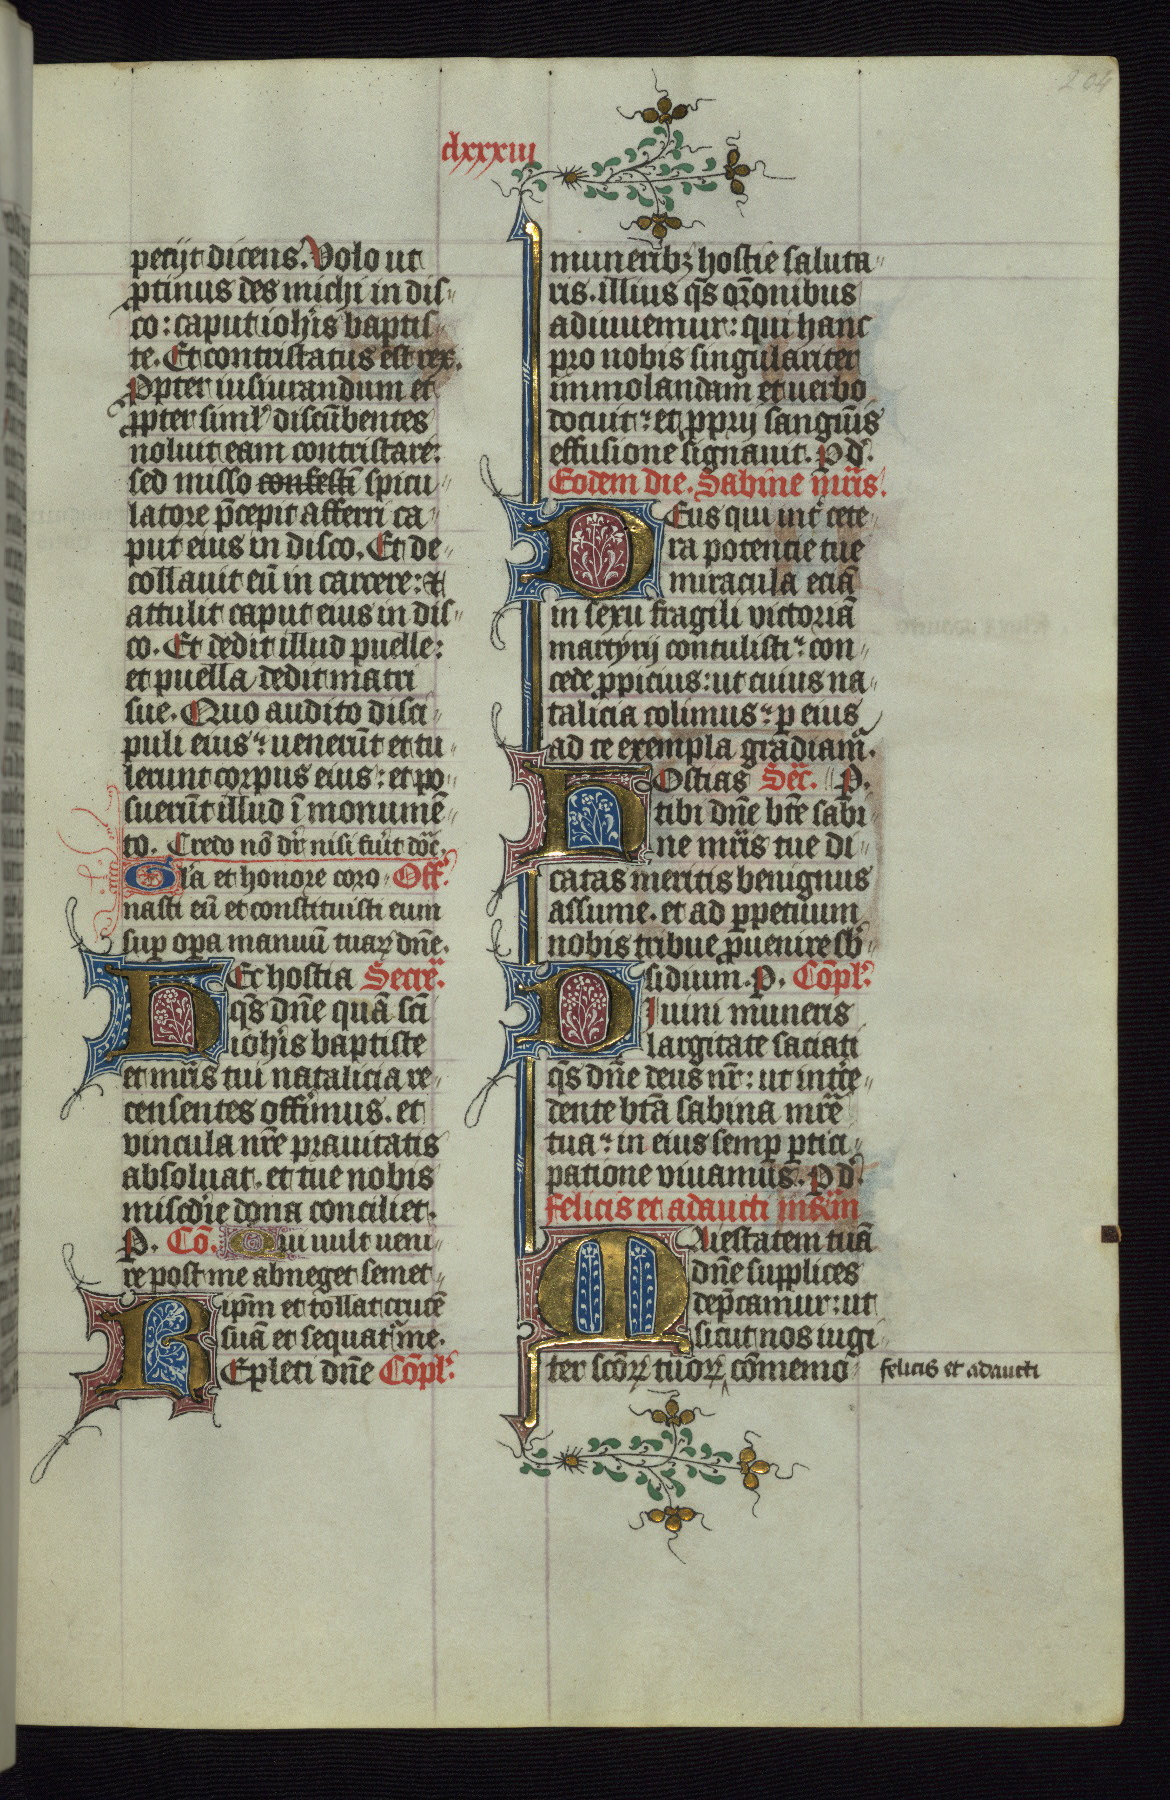 204
clxxxiii
petijt dicens. Volo ut
ꝓtinus des michi in dis
co: caput ioh̄is baptis
te. Et contristatus est rex.
Ꝓpter iusiurandum et
ꝓpter siml̓ discūbentes
noluit eam contristare:
sed misso confestī spicu
latore p̄cepit afferri ca
put eius in disco. Et de
collauit eū in carcere: et
attulit caput eius in dis
co. Et dedit illud puelle:
et puella dedit matri
sue. Quo audito disci
puli eius: uenerūt et tu
lerunt corpus eius: et po
suerūt illud ī monumē
to. Credo nō dr̄ nisi fuīt dōe.
Gl̄a et honore coro Off̄.
nasti eū et constituisti eum
suꝑ oꝑa manuū tuaꝝ dn̄e.
Hec hostia Secre̅.
q̄s dn̄e quā sc̄i
ioh̄is baptiste
et mr̄is tui natalicia re
censentes offīmus. et
vincula nr̄e prauitatis
absoluat. et tue nobis
misc̄die dona conciliet.
P. Cō. Qui uult ueni
re post me abneget semet
ip̄m et tollat crucē
suā et sequat᷑ me.
Repleti dn̄e Cōpl̓.
muneribꝫ hostie saluta
ris. illius q̄s or̄onibus
adiuuemur: qui hanc
pro nobis singulariter
immolandam et uerbo
docuit: et ꝓprij sangūis
effusione signauit. P d̓.
Eodem die. Sabine mr̄is.
Deus qui int̓ cete
ra potencie tue
miracula eciā
in sexu fragili victoriā
martyrij contulisti: con
cede ꝓpicius: ut cuius na
talicia colimus: ꝑ eius
ad te exempla gradiam᷑.
Hostias Sec̄. P.
tibi dn̄e bt̄e sabi
ne mr̄is tue di
catas meritis benignus
assume. et ad ꝑpetuum
nobis tribue ꝓuenire sb̓
sidium. P. Cōpl̓.
Diuini muneris
largitate saciati
q̄s dn̄e deus nr̄: ut int̓ce
dente bt̄a sabina mr̄e
tua: in eius semꝑ ꝑtici
patione viuamus. P d̓.
felicis et adaucti mr̄im
Maiestatem tuā
dn̄e supplices
dep̄camur: ut
sicut nos iugi
ter sc̄oꝝ tuoꝝ cōmemo
felicis et adaucti